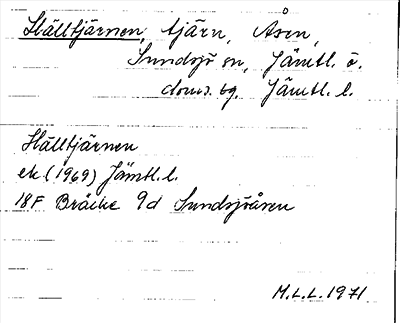 Hälltjärnen, tjärn, Åsen,
Sundsjö sn, Jämtl. ö.
doms. bg. Jämtl. l.
Hälltjärnen
ek (1969) Jämtl. l.
18F Bräcke 9d Sundsjöåsen
M.L.L. 1971